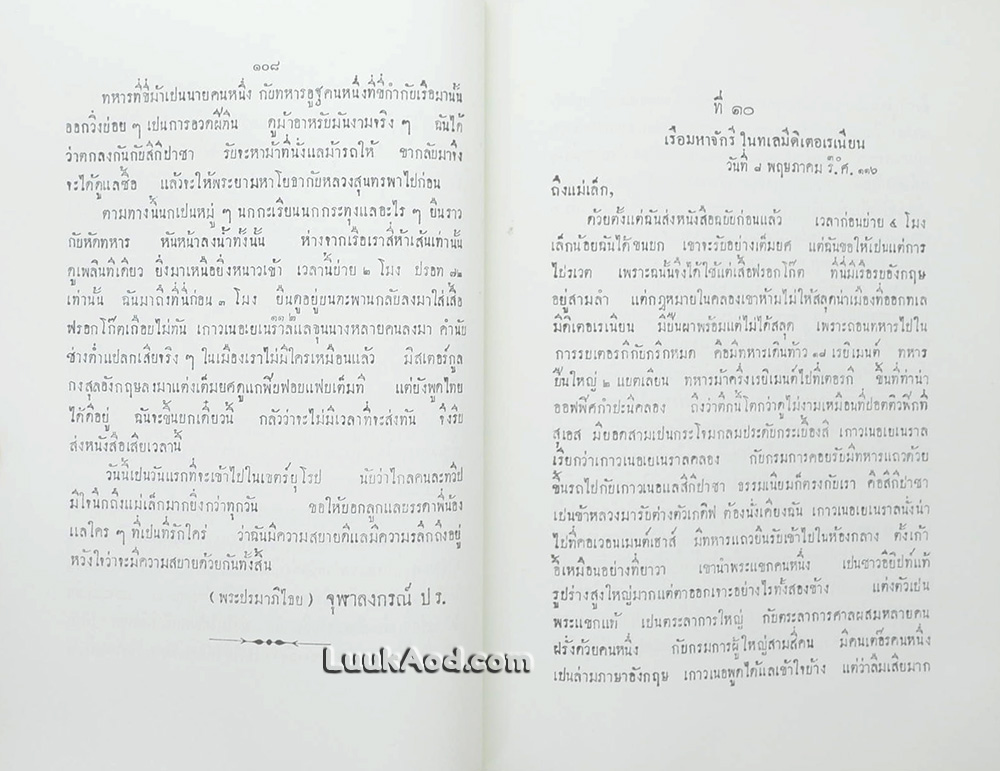 ๑๐๘
ทหารที่ขี่ม้าเปนนายคนหนึ่ง กับทหารอูฐคนหนึ่งที่ขี่กำกับเรือมานั้น
ออกวิ่งบ่อย ๆ เปนการอวดฝีตีน ดูม้าอาหรับมันงามจริง ๆ ฉันได้
ว่าตกลงกันกับสิกีปาชา รับจะหาม้าที่นั่งแลม้ารถให้ ขากลับมาจึง
จะได้ดูแลซื้อ แล้วจะให้พระยามหาโยธากับหลวงสุนทรพาไปก่อน
ตามทางนี้นกเปนหมู่ ๆ นกกะเรียนนกกระทุงแลอะไร ๆ ยืนราว
กับหัดทหาร หันหน้าลงน้ำทั้งนั้น ห่างจากเรือเราสี่ห้าเส้นเท่านั้น
ดูเพลินทีเดียว ยิ่งมาเหนือยิ่งหนาวเข้า เวลานี้บ่าย ๒ โมง ปรอท ๗๒
เท่านั้น ฉันมาถึงที่นี่ก่อน ๓ โมง ยืนดูอยู่บนตะพานกลับลงมาใส่เสื้อ
ฟรอกโก๊ตเกือบไม่ทัน เกาวเนอเยเนราลแลขุนนางหลายคนลงมา คำนับ
ช่างต่ำแปลกเสียจริง ๆ ในเมืองเราไม่มีใครเหมือนแล้ว มิสเตอร์กูล
กงสุลอังกฤษลงมาแต่งเต็มยศดูแกฟืบฟอบแฟบเต็มที แต่ยังพูดไทย
ได้ดีอยู่ ฉันจะขึ้นบกเดี๋ยวนี้ กลัวว่าจะไม่มีเวลาที่จะส่งทัน จึงรีบ
ส่งหนังสือเสียเวลานี้
วันนี้เปนวันแรกที่จะเข้าไปในเขตร์ยุโรป นับว่าไกลคนละทวีป
มีใจนึกถึงแม่เล็กมากยิ่งกว่าทุกวัน ขอให้บอกลูกแลบรรดาพี่น้อง
แลใคร ๆ ที่เปนที่รักใคร่ ว่าฉันมีความสบายดีแลมีความรลึกถึงอยู่
หวังใจว่าจะมีความสบายด้วยกันทั้งสิ้น
(พระบรมาภิไธย) จุฬาลงกรณ์ ปร.
ที่ ๑๐
เรือมหาจักรี ในทเลมิดิเตอเรเนียน
วันที่ ๘ พฤษภาคม ร.ศ. ๑๑๖
ถึงแม่เล็ก,
ด้วยตั้งแต่ฉันส่งหนังสือฉบับก่อนแล้ว เวลาก่อนบ่าย ๔ โมง
เล็กน้อยฉันได้ขึ้นบก เขาจะรับอย่างเต็มยศ แต่ฉันขอให้เปนแต่การ
ไปรเวต เพราะฉนั้นจึงได้ใช้แต่เสื้อฟรอกโก๊ต ที่นี่มีเรือรบอังกฤษ
อยู่สามลำ แต่กฎหมายในคลองเขาห้ามไม่ให้สลุตน่าเมืองที่ออกทเล
มิดิเตอเรเนียน มีปืนผาพร้อมแต่ไม่ได้สลุต เพราะถอนทหารไปใน
การรบเตอรกีกับกริกหมด คือมีทหารเดินท้าว ๑๘ เรยิเมนต์ ทหาร
ปืนใหญ่ ๒ แบตเลียน ทหารม้าครึ่งเรยิเมนต์ไปที่เตอรกี ขึ้นที่ท่าน่า
ออฟฟิศกำปะนีคลอง ถึงว่าตึกนี้โตกว่าดูไม่งามเหมือนที่ปอตติวฟิกที่
สุเอส มียอดสามเปนกระโจมกลมประดับกระเบื้องสี เกาวเนอเยเนราล
เรียกว่าเกาวเนอเยเนราลคลอง กับกรมการคอยรับมีทหารแถวด้วย
ขึ้นรถไปกับเกาวเนอแลสิกีปาชา ธรรมเนียมก็ตรงกับเรา คือสิกีปาชา
เปนข้าหลวงมารับต่างตัวเกดิฟ ต้องนั่งเคียงฉัน เกาวเนอเยเนราลนั่งน่า
ไปที่คอเวอนเมนต์เฮาส์ มีทหารแถวยืนรับเข้าไปในห้องกลาง ตั้งเก้า
อี้เหมือนอย่างที่ยาวา เขานำพระแขกคนหนึ่ง เปนชาวอิยิปท์แท้
รูปร่างสูงใหญ่มากแต่ตาออกเจาะอย่างไรทั้งสองข้าง แต่งตัวเปน
พระแขกแท้ เปนตระลาการใหญ่ กับตระลาการศาลผสมหลายคน
ฝรั่งด้วยคนหนึ่ง กับกรมการผู้ใหญ่สามสี่คน มีดนเตอร์คนหนึ่ง
เปนล่ามภาษาอังกฤษ เกาวเนอพูดได้แลเข้าใจบ้าง แต่ว่าลืมเสียมาก
LuukAod.com